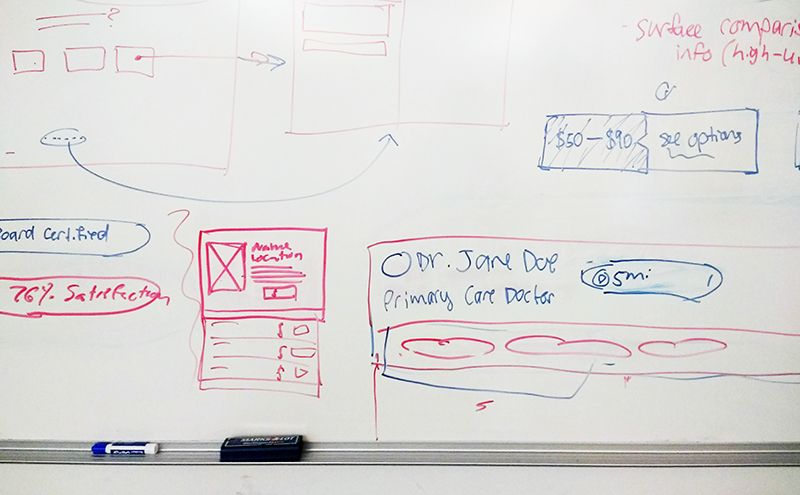 ?
- surface comparis
info (high-le
$50 — $90
see options
Board Certified
76% Satisfection
Name
Location
Dr. Jane Doe
5mi
Primary Care Doctor
$
$
$
5
MARKS-A-LOT